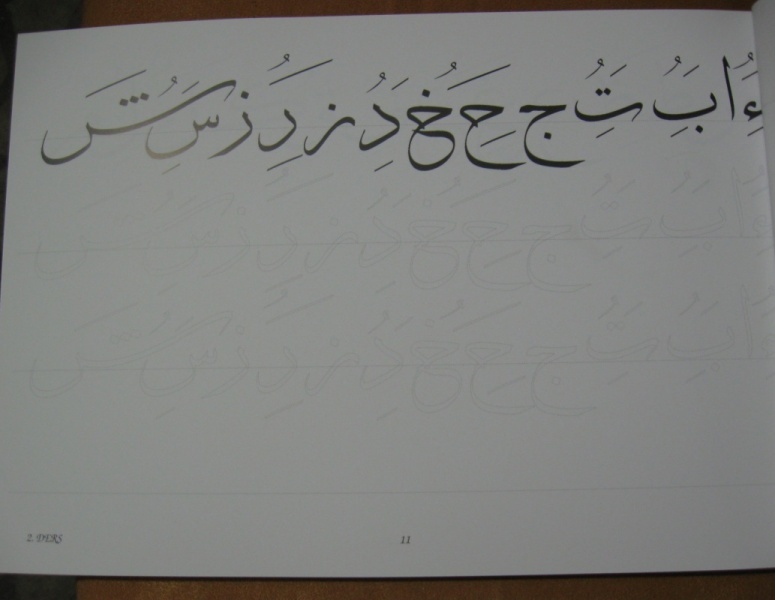 ءُِ ا بَُِ تَُِ ج حَِ خُ دَُِ ذ رَُِ ز سَُِ شَ
2. DERS
11